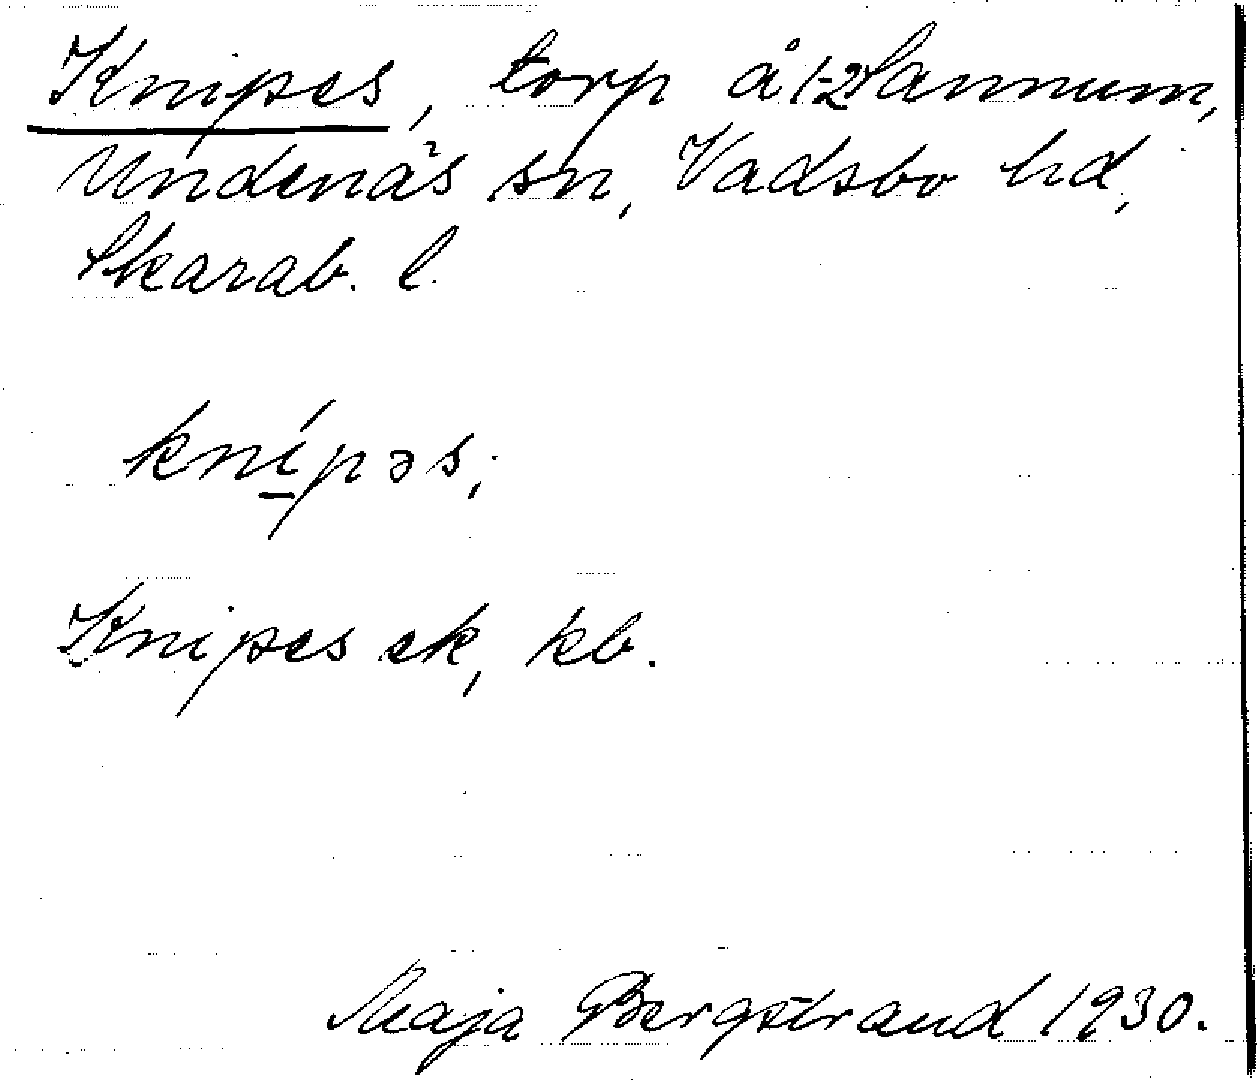 Knipes, torp å 1-2 Sannum,
Undenäs sn, Vadsbo hd,
Skarab. l.
knípəs;
Knipes ek, kb.
Maja Bergstrand 1930.